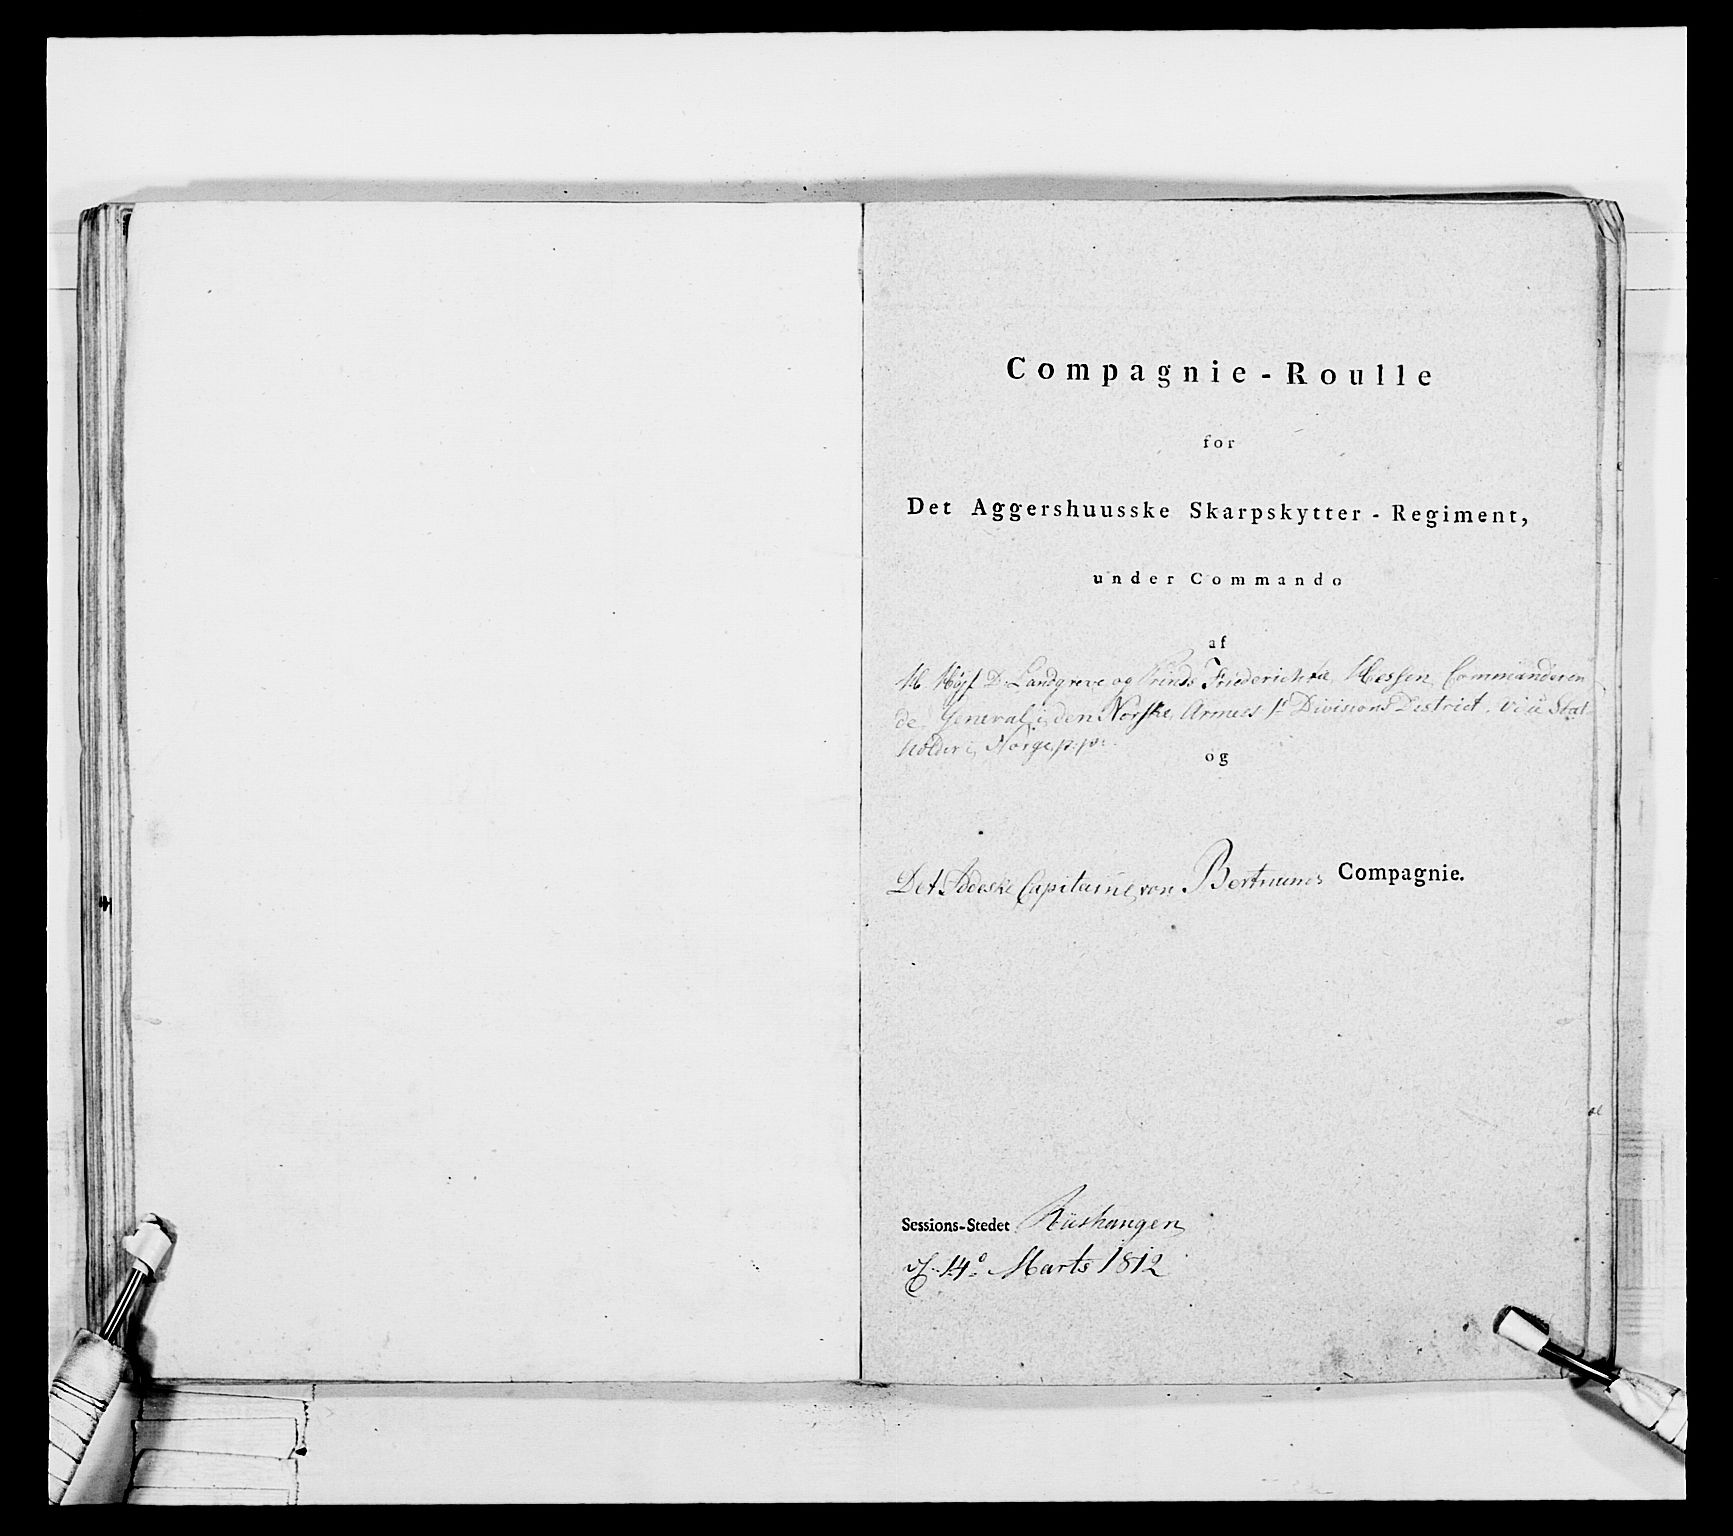 Compagnie-Roulle
for
Det Aggershuusske Skarpskytter-Regiment,
under Commando
af
H. Høyf. D. Landgreve og Prinds Friederich til Hessen, Commanderen-
de General i den Norske Armees 1t Divisions District, vice Stat-
holder i Norge p.p.
og
Det Capitaine von Compagnie.
Sessions-Stedet
d. 14d Marts 1812